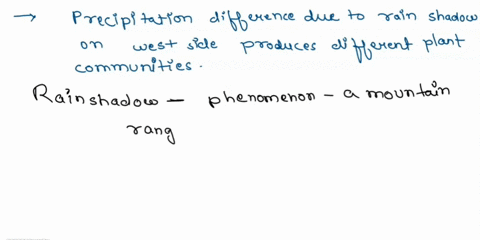 → Precipitation difference due to rain shadow
on west side produces different plant
communities.
Rainshadow – phenomenon – a mountain
rang